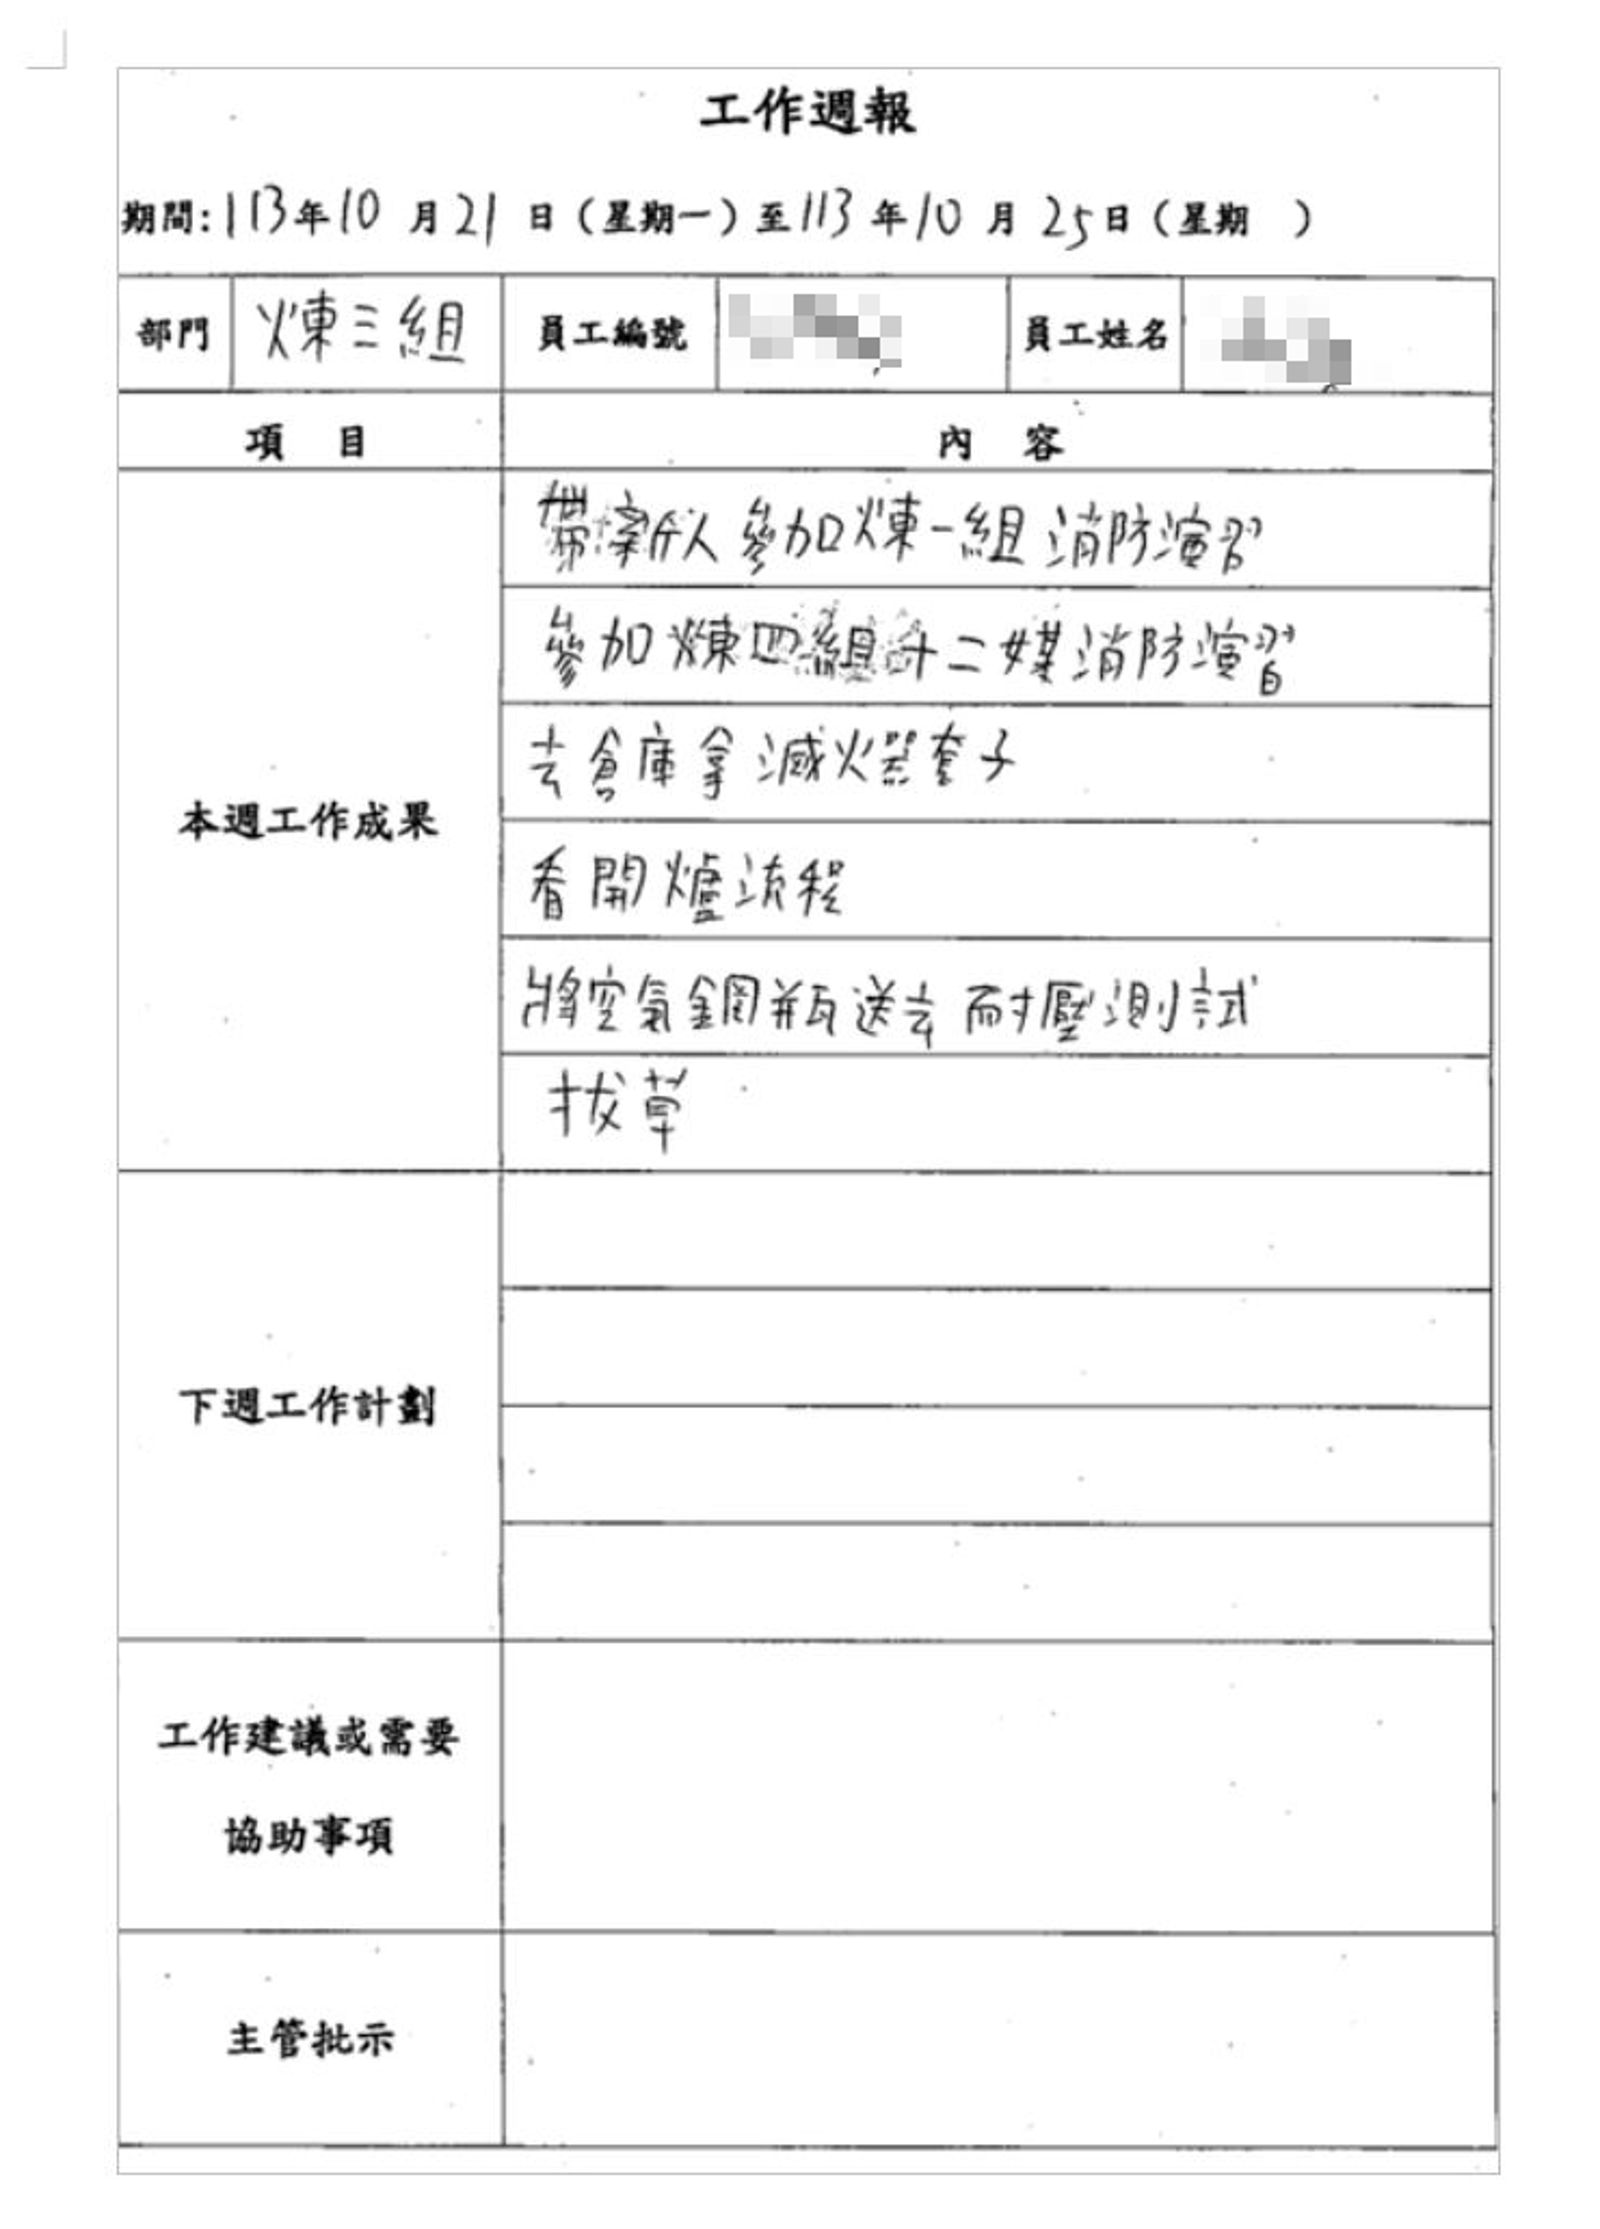 工作週報
期間:113年10月21日(星期一)至113年10月25日(星期 )
部門 煉三組 員工編號 員工姓名
項目 內容
本週工作成果
帶新人參加煉一組消防演習
參加煉四組十二媒消防演習
去倉庫拿滅火器套子
看開爐流程
將空氣鋼瓶送去耐壓測試
拔草
下週工作計劃
工作建議或需要
協助事項
主管批示